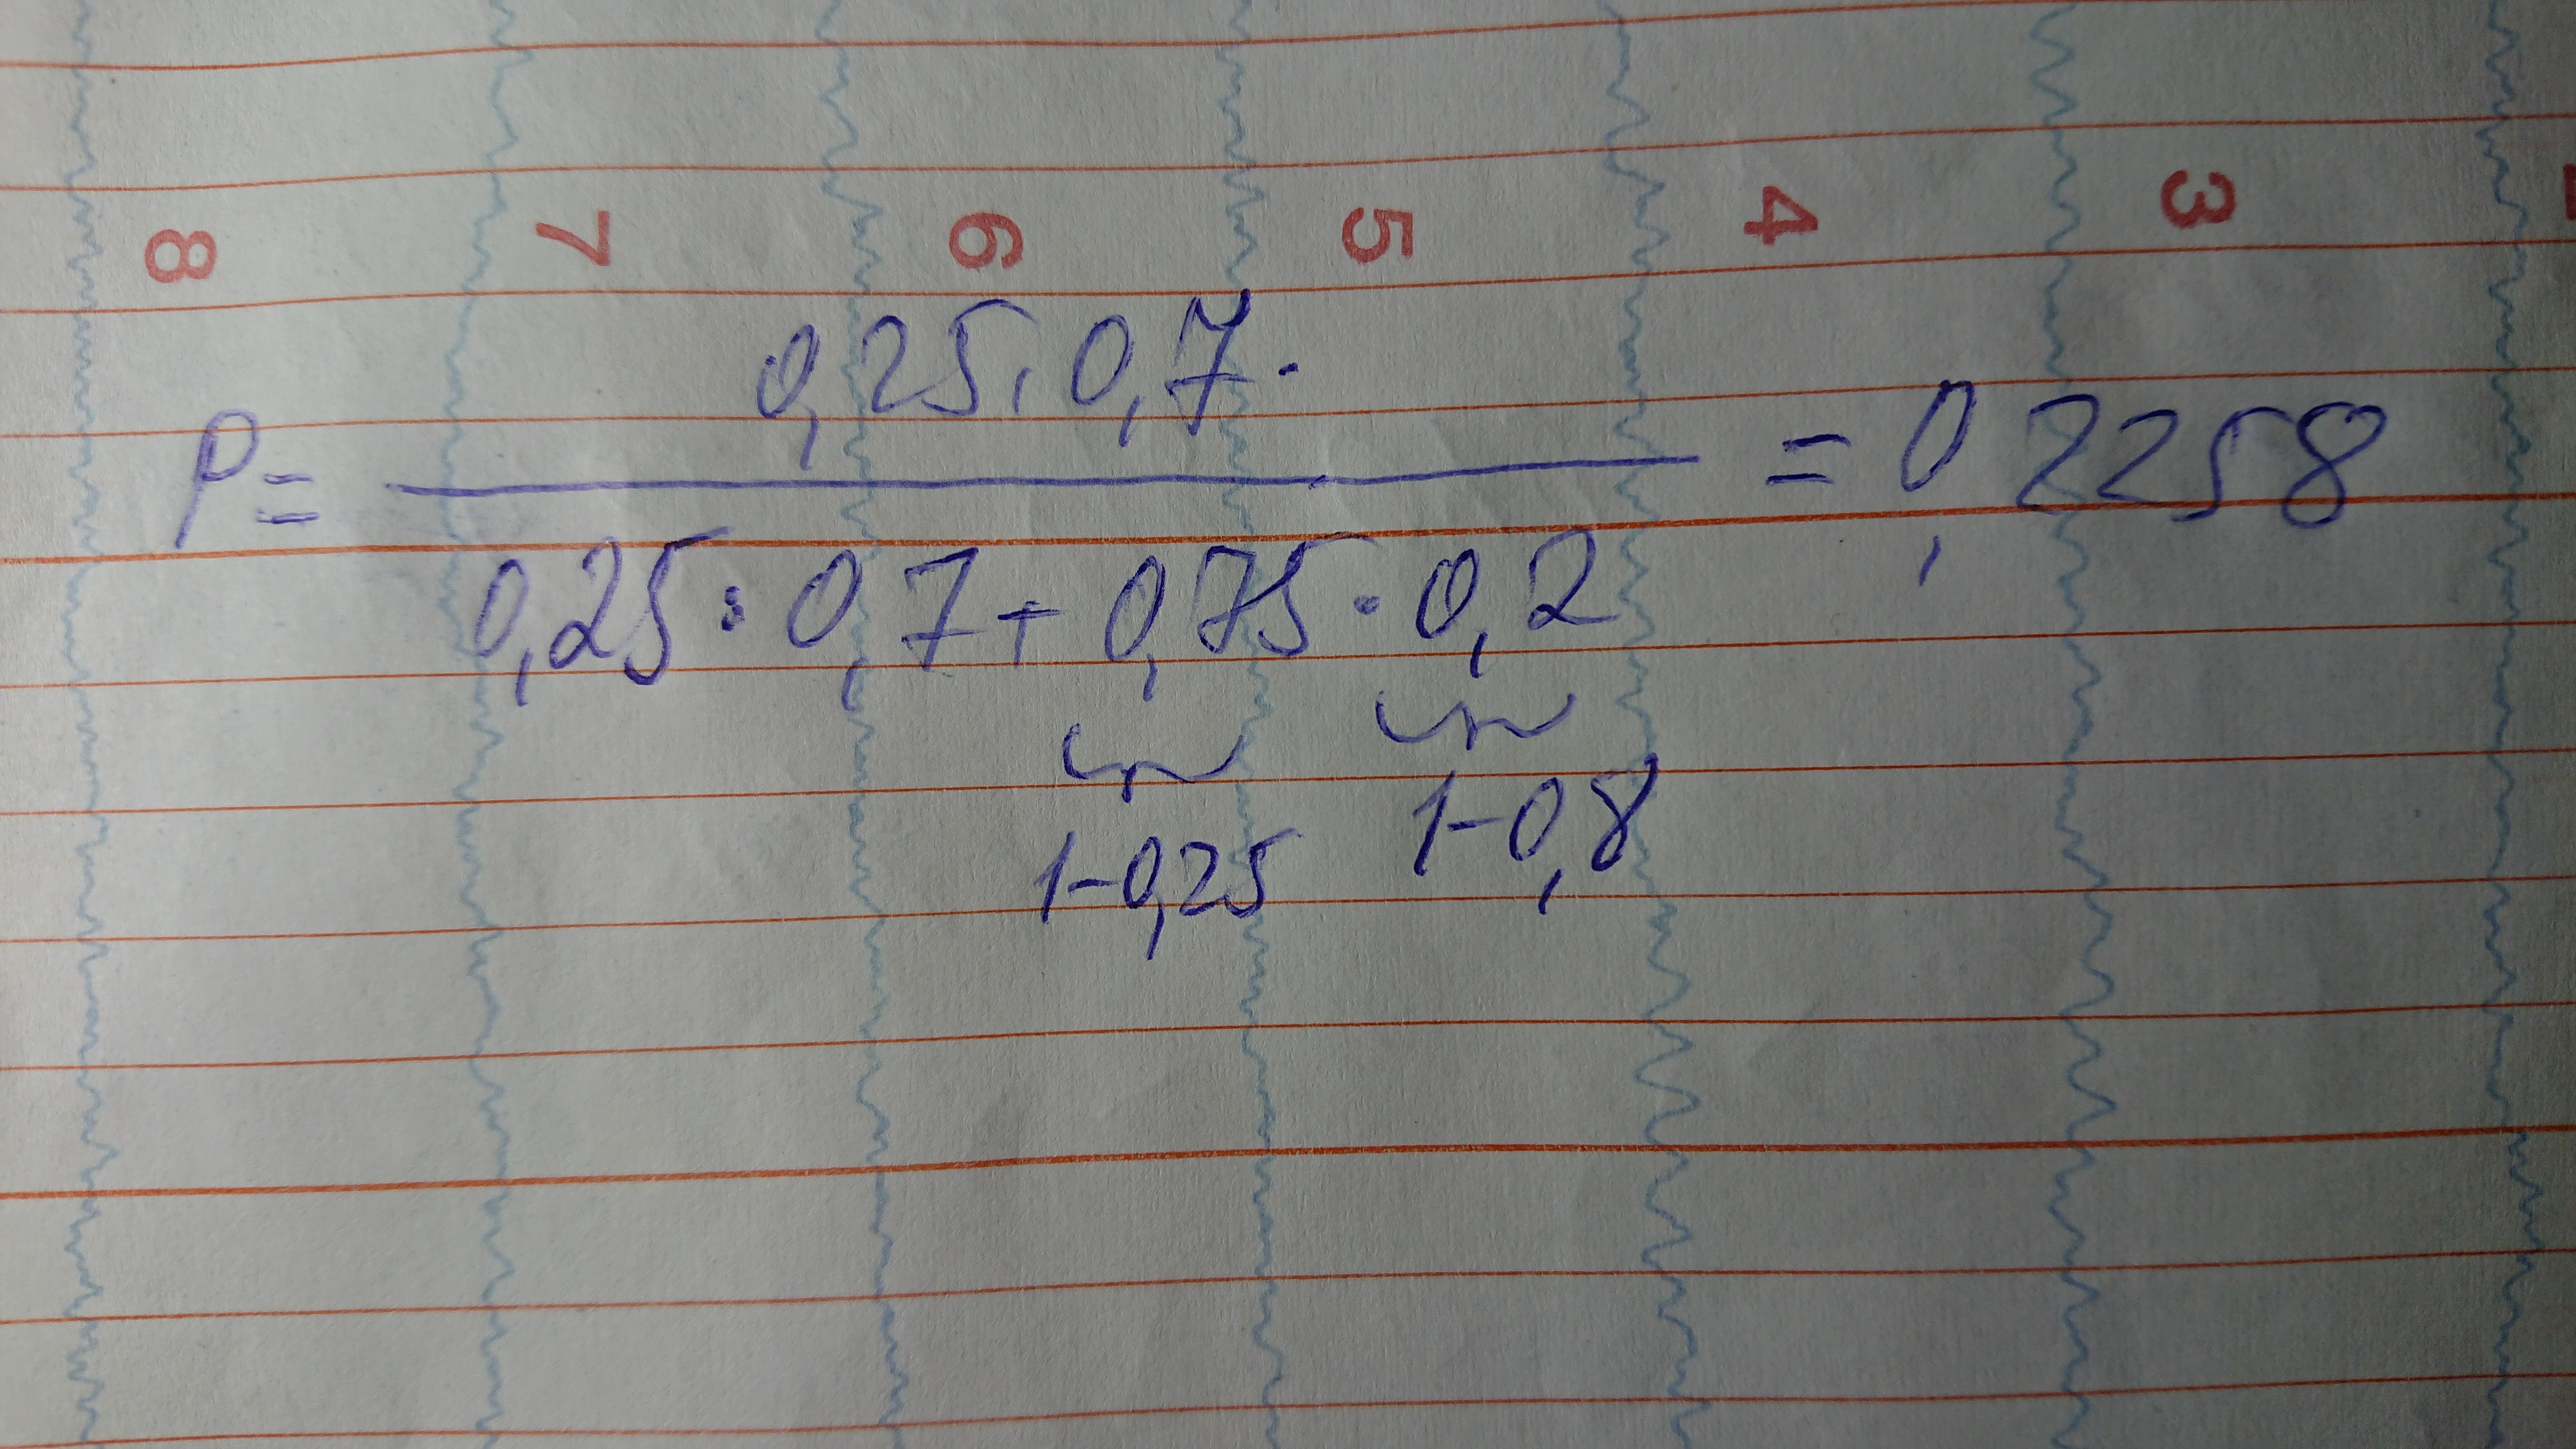 8 7 6 5 4 3
0,25·0,7·
P= = 0,2258
0,25·0,7+0,75·0,2
1-0,25 1-0,8